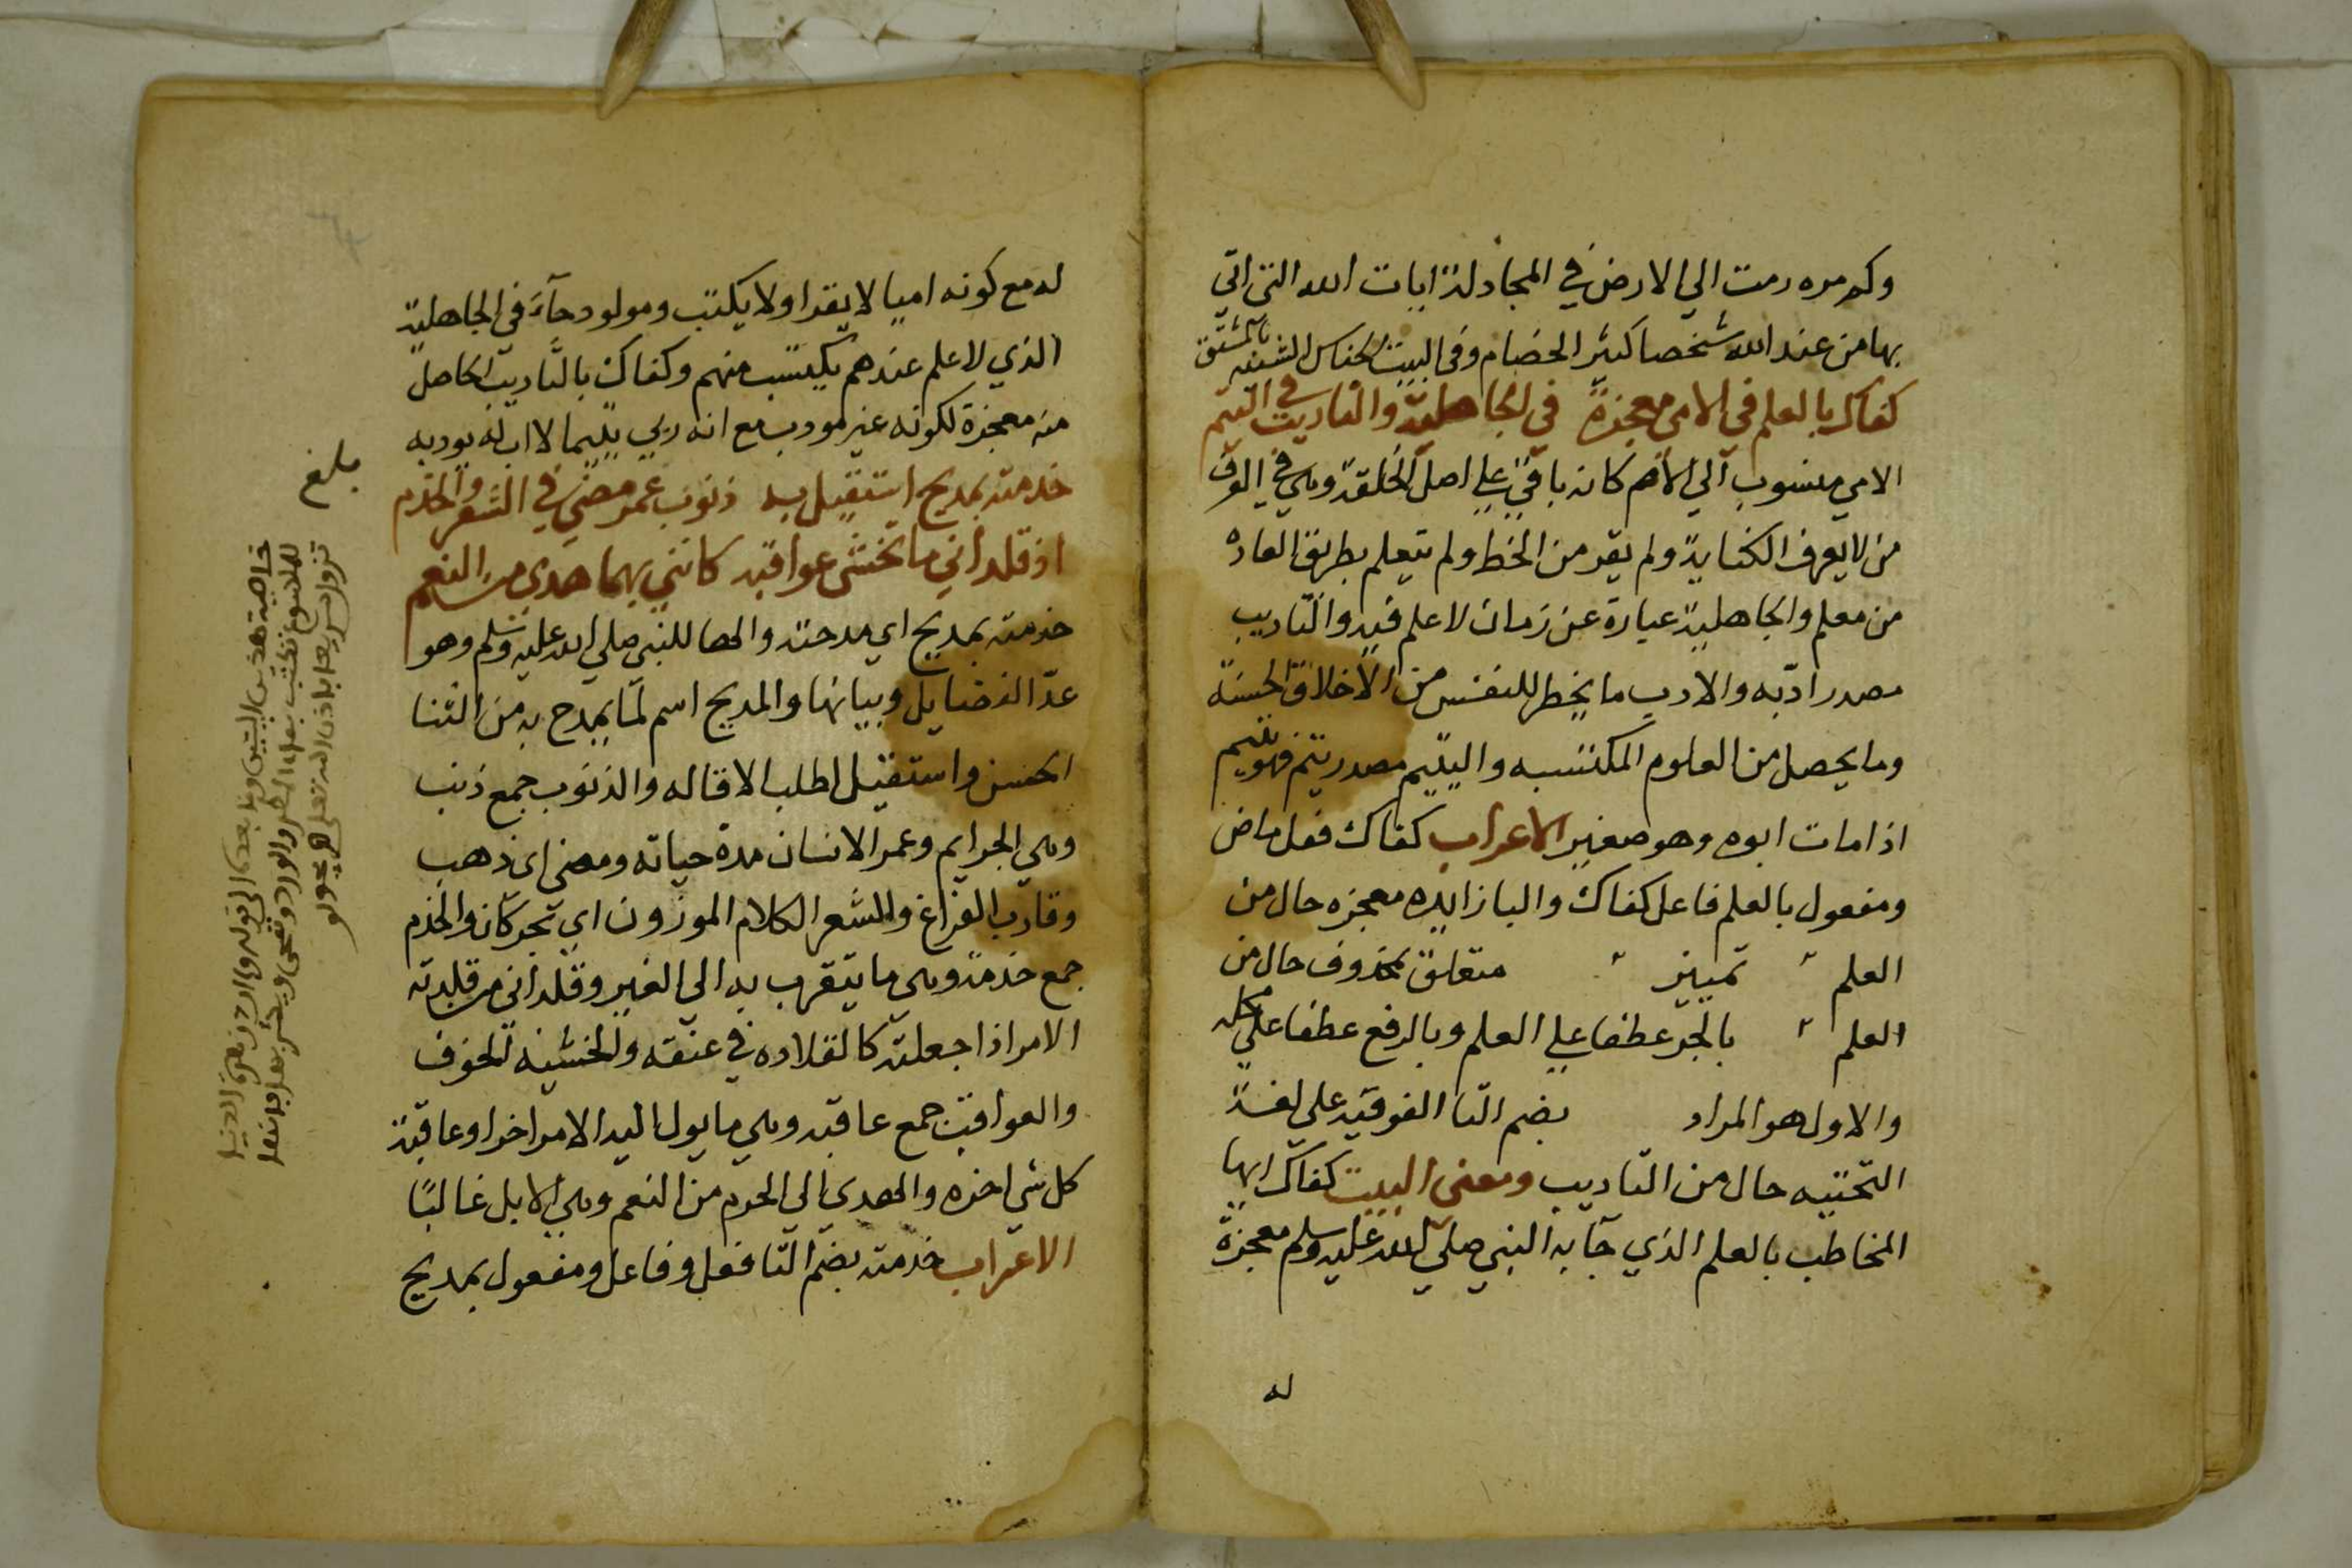 وكم مره رمت الي الارض في المجادلة ايات الله التي اتي
بها من عند الله شخصا كثير الخصام وفي البيت الجناس الشبيه بالمشتق
كفاك بالعلم في الامي معجزة في الجاهلية والتاديب في اليتم
الامي منسوب الي الام كانه باقي علي اصل الخلقة وهي في العرف
من لا يعرف الكتابة ولم يقر من الخط ولم يتعلم بطريق العاده
من معلم والجاهلية عبارة عن زمان لا علم فيه والتاديب
مصدر ادبه والادب ما يخطر للنفس من الاخلاق الحسنة
وما يحصل من العلوم المكتسبه واليتيم مصدر يتم فهو يتيم
اذا مات ابوه وهو صغير الاعراب كفاك فعل ماض
ومفعول بالعلم فاعل كفاك والبا زايده معجزه حال من
العلم " تمييز " متعلق بمحذوف حال من
العلم " بالجر عطفا علي العلم وبالرفع عطفا علي محله
والاول هو المراد بضم التا الفوقيه علي لغة
التحتيه حال من التاديب ومعني البيت كفاك ايها
المخاطب بالعلم الذي جآ به النبي صلي الله عليه وسلم معجزة
له
له مع كونه اميا لا يقرا ولا يكتب ومولود جآء في الجاهلية
الذي لا علم عندهم يكتسب منهم وكفاك بالتاديب الحاصل
منه معجزة لكونه غير مودب مع انه ربي يتيما لا اب له يودبه
خدمته بمديح استقيل به ذنوب عمر مضي في الشعر والخدم
اذ قلداني ما تخشى عواقبه كانني بهما هدي من النعم
خدمته بمديح اي مدحته والها للنبي صلي الله عليه وسلم وهو
عدّ الفضايل وبيانها والمديح اسم لما يمدح به من الثنا
الحسن واستقيل اطلب الاقاله والذنوب جمع ذنب
وهي الجرايم وعمر الانسان مدة حياته ومضي اي ذهب
وقارب الفراغ والشعر الكلام الموزون اي تجركان والخدم
جمع خدمة وهي ما يتقرب به الي الغير وقلداني من قلدته
الامر اذا جعلته كالقلاده في عنقه والخشيه الخوف
والعواقب جمع عاقبه وهي ما يول اليه الامر اخرا وعاقبة
كل شي اخره والهدي الي الحرم من النعم وهي الابل غالبًا
الاعراب خدمته بضم التا فعل وفاعل ومفعول بمديح
بلغ
خاصية هذين البيتين وما بعدها الي قوله